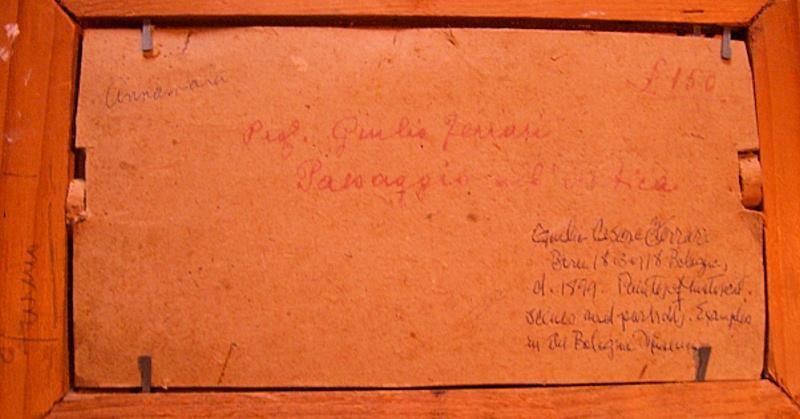 Annamaria
£ 150
Prof. Giulio Ferrari
Paesaggio
Giulio Cesare Ferrari
Born 1818 Bologna,
d. 1899. Painter of historical
scenes and portraits. Examples
in the Bologna Museum